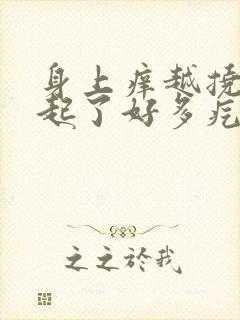 身上痒越挠
起了好多疙
之之於我